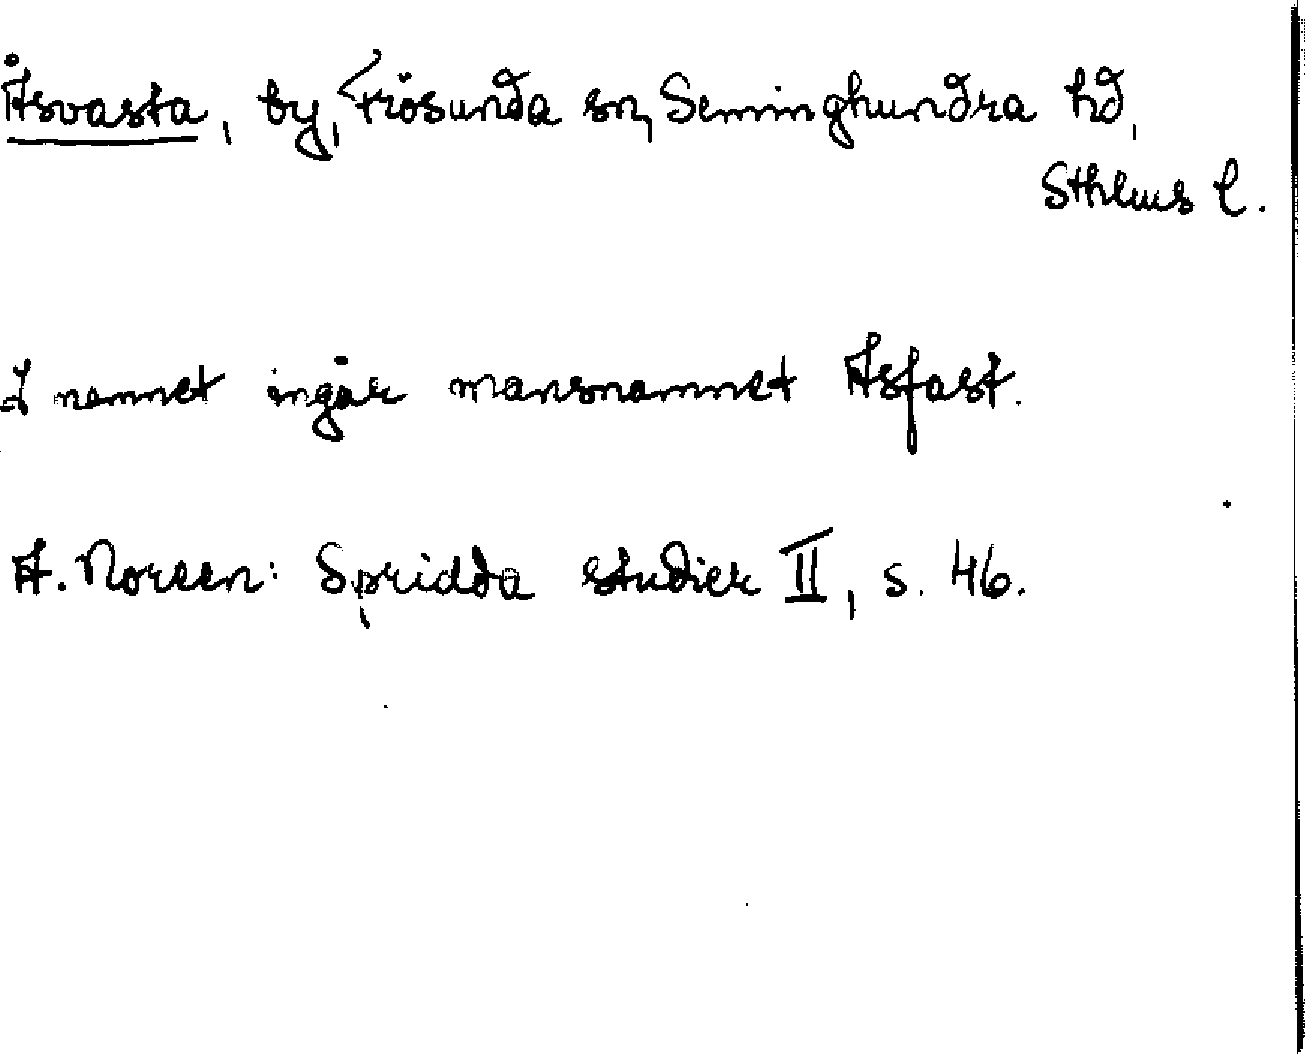 Åsvasta, by, Frösunda sn, Seminghundra hd,
Sthlms l.
I namnet ingår mansnamnet Asfast.
A. Noreen: Spridda studier II, s. 46.